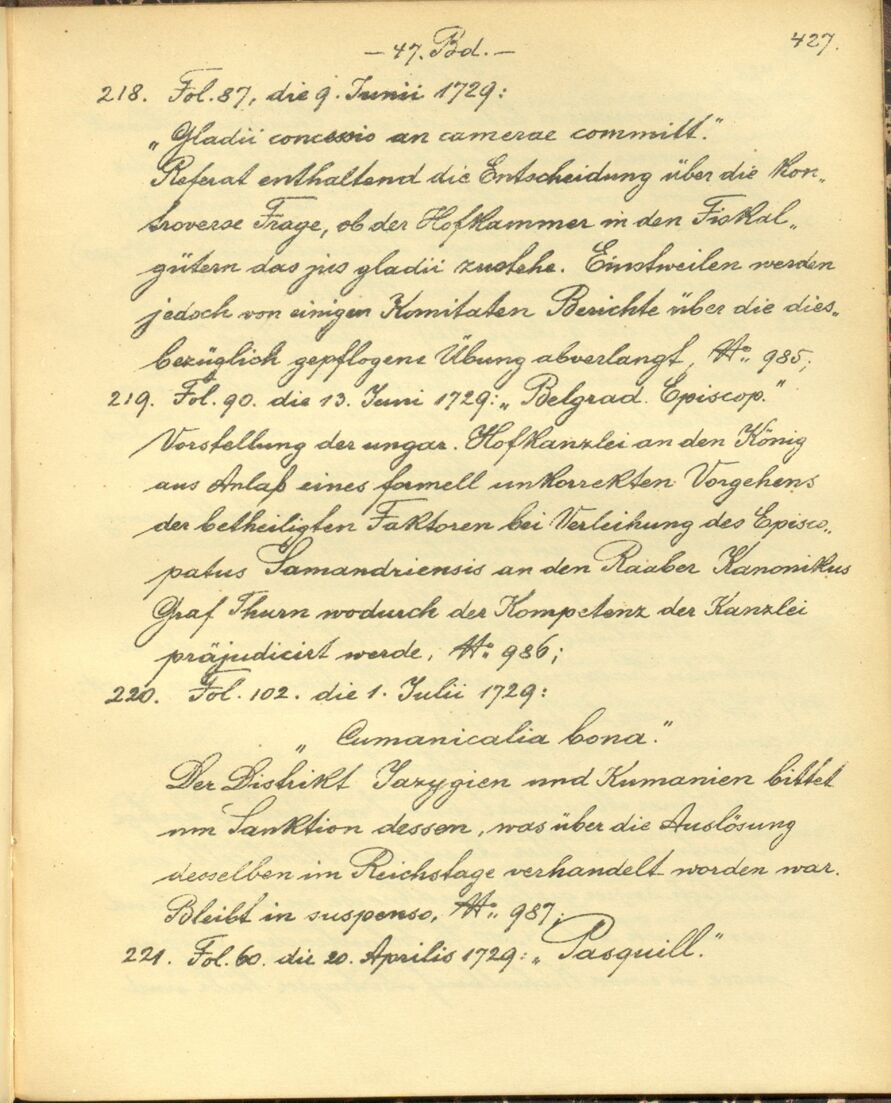 – 47. Bd. –
427.
218. Fol. 87, die 9. Junii 1729:
„Gladii concessio an camerae committ."
Referat enthaltend die Entscheidung über die kon„
troverse Frage, ob der Hofkammer in den Fiskal„
gütern das jus gladii zustehe. Einstweilen werden
jedoch von einigen Komitaten Berichte über die dies„
bezüglich gepflogene Übung abverlangt, № 985;
219. Fol. 90. die 13. Juni 1729: „Belgrad. Episcop."
Vorstellung der ungar. Hofkanzlei an den König
aus Anlaß eines formell unkorrekten Vorgehens
der betheiligten Faktoren bei Verleihung des Episco„
patus Samandriensis an den Raaber Kanonikus
Graf Thurn wodurch der Kompetenz der Kanzlei
präjudicirt werde, № 986;
220. Fol. 102. die 1. Julii 1729:
„Cumanicalia bona."
Der Distrikt Jazygien und Kumanien bittet
um Sanktion dessen, was über die Auslösung
desselben im Reichstage verhandelt worden war.
Bleibt in suspenso, № 987;
221. Fol. 60. die 20. Aprilis 1729: „Pasquill."